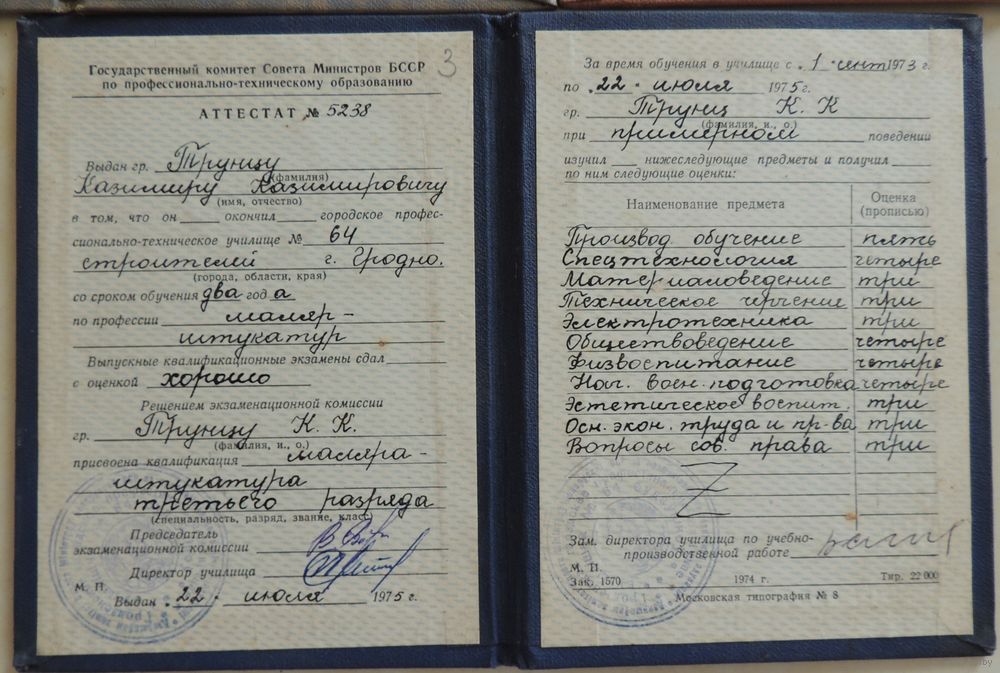 3
Государственный комитет Совета Министров БССР
по профессионально-техническому образованию
АТТЕСТАТ № 5238
Выдан гр. Трунцу
(фамилия)
Казимиру Казимировичу
(имя, отчество)
в том, что он окончил городское профес-
сионально-техническое училище № 64
строителей г. Гродно.
(города, области, края)
со сроком обучения два год а
по профессии маляр-
штукатур
Выпускные квалификационные экзамены сдал
с оценкой хорошо
Решением экзаменационной комиссии
гр. Трунцу К. К.
(фамилия, и., о.)
присвоена квалификация маляра-
штукатура
третьего разряда
(специальность, разряд, звание, класс)
Председатель
экзаменационной комиссии
Директор училища
М. П.
Выдан .22. июля 1975 г.
За время обучения в училище с .1. сент 1973 г.
по .22. июля 1975 г.
гр. Трунц К. К
(фамилия, и., о.)
при примерном поведении
изучил нижеследующие предметы и получил
по ним следующие оценки:
Наименование предмета Оценка (прописью)
Производ обучение пять
Спецтехнология четыре
Материаловедение три
Техническое черчение три
Электротехника три
Обществоведение четыре
Физвоспитание четыре
Нач. воен. подготовка четыре
Эстетическое воспит. три
Осн. экон. труда и пр-ва три
Вопросы сов. права три
Зам. директора училища по учебно-
производственной работе
М. П.
Зак. 1570 1974 г. Тир. 22 000
Московская типография № 8
.by